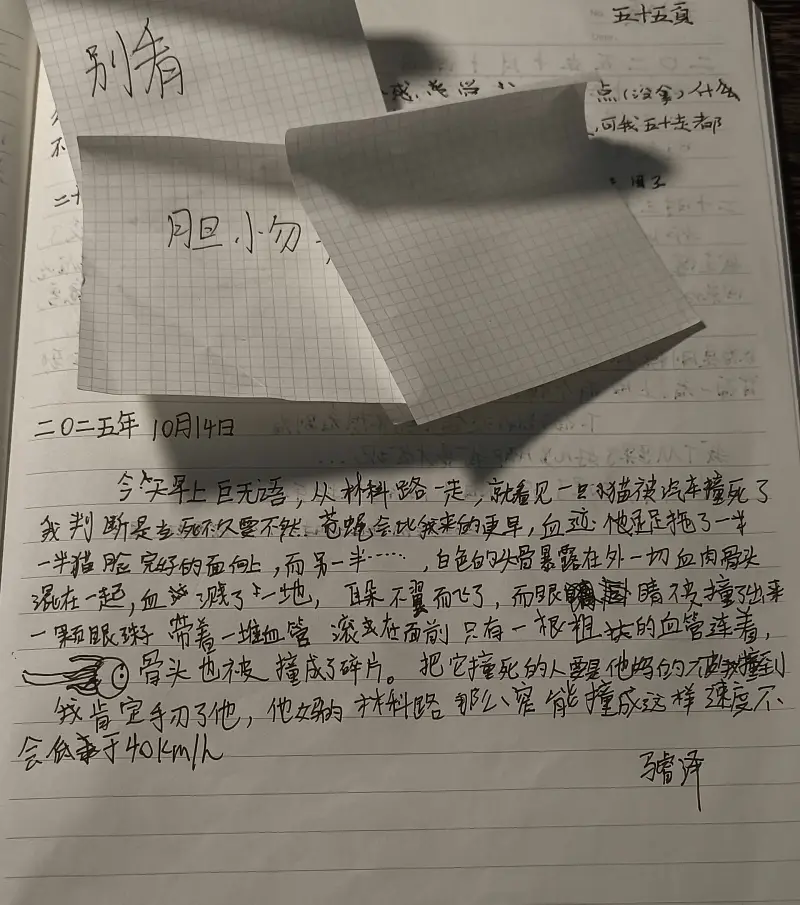 五十五頁
别看
点(没拿)什么
可我五十走都
不
二十
胆小勿
二〇二五年 10月14日
今天早上巨无语，从材料路一走，就看见一只小猫被汽车撞死了
我判断是去死不久要不然，苍蝇会比我来的更早，血迹 他足足拖了一半
一半猫脸完好的面向上，而另一半……，白色的头骨暴露在外一切血肉骨头
混在一起，血 溅了 一地， 耳朵不翼而飞了，而眼 睛被撞了出来
一颗眼珠子带着一堆血管 滚 在面前只有一根粗壮的血管连着，
骨头也被撞成了碎片。把它撞死的人要是他妈的 被我撞到
我肯定手刃了他，他妈的材料路那么窄能撞成这样速度不
会低 于40km/h
马睿泽